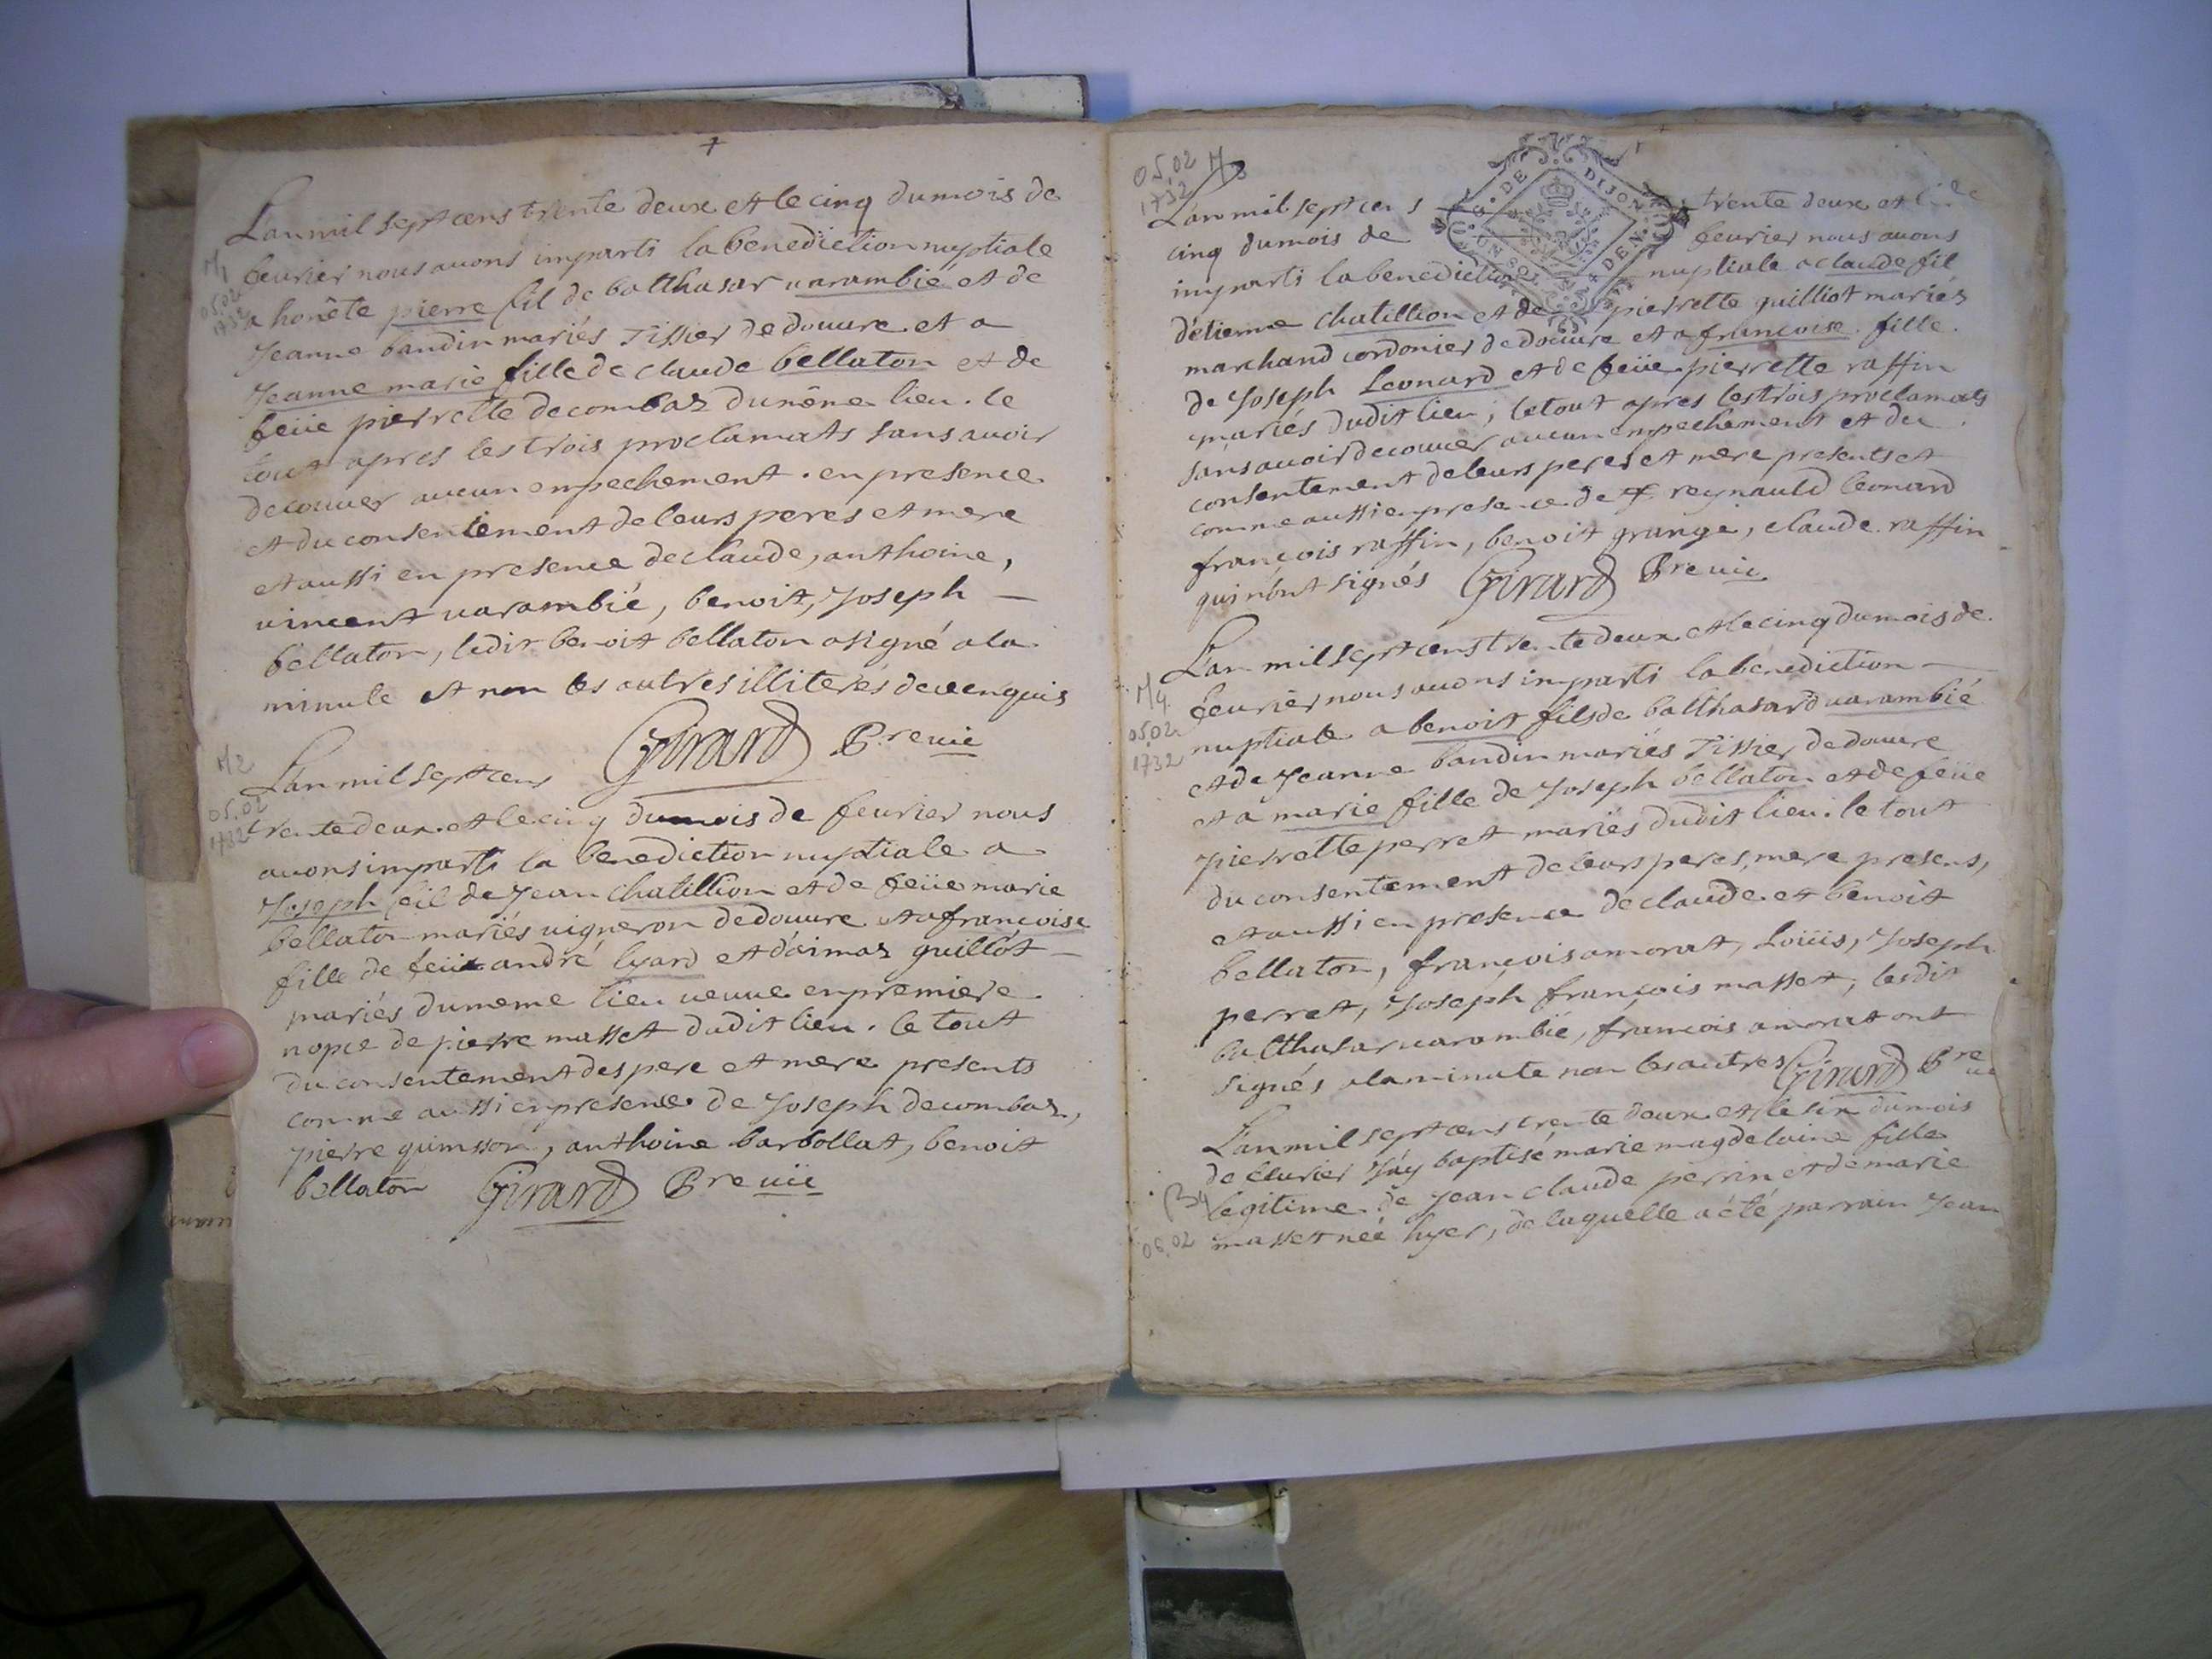 +
L'an mil sept cens trente deux et le cinq du mois de
M1 fevrier nous avons imparti la benediction nuptiale
05.02 1732 a honête pierre fil de balthasar varambié et de
Jeanne bandin mariés Tissier de douvre et a
Jeanne marie fille de claude bellaton et de
feüe pierrette decombaz du même lieu. le
tout apres les trois proclamats sans avoir
decouver aucun empechement. en presence
et du consentement de leurs peres et mere
et aussi en presence de claude, anthoine,
vincent varambié, benoit, Joseph –
bellaton, ledit benoit bellaton a signé a la
minute et non les autres illiterés de ce enquis
Girard Pre vic
M2
L'an mil sept cens
05.02 1732 trente deux et le cinq du mois de fevrier nous
avons imparti la benediction nuptiale a
Joseph feil de Jean chatillion et de feüe marie
bellaton mariés vigneron de douvre et a francoise
fille de feüe andré lyard et d'aimaz guillot –
mariés du meme lieu veuve en premiere
nopce de pierre masset dudit lieu. le tout
du consentement des pere et mere presents
comme aussi en presence de Joseph decombaz,
pierre guinsson, anthoine barbollat, benoit
bellaton Girard Pre vic
05.02 1732 M3
G. DE DIJON
UN SOL 4 DEN.
L'an mil sept cens trente deux et le
cinq du mois de fevrier nous avons
imparti la benediction nuptiale a claude fil
d'etienne chatillion et de pierrette guilliot mariés
marchand cordonier de douvre et a françoise fille
de Joseph Leonard et de feüe pierrette raffin
mariés dudit lieu, le tout apres les trois proclamats
sans avoir decouver aucun empechement et du
consentement de leurs peres et mere presents et
comme aussi en presence de reynauld leonard
françois raffin, benoit grange, claude raffin
qui n'ont signés Girard Pre vic
L'an mil sept cens trente deux et le cinq du mois de
M4. fevrier nous avons imparti la benediction –
05.02 1732 nuptiale a benoit fils de balthasard varambié
et de Jeanne bandin mariés Tissier de douvre
et a marie fille de Joseph bellaton et de feüe
pierrette perret mariés dudit lieu. le tout
du consentement de leurs peres, mere presens,
et aussi en presence de claude et benoit
bellaton, françois amorat, Loüis, Joseph
perret, Joseph françois masset, lesdit
balthasar varambié, francois amorat ont
signés a la minute non les autres Girard Pre vic
L'an mil sept cens trente deux et le six du mois
de fevrier J'ay baptisé marie magdelaine fille
B4 legitime de Jean claude perrin et de marie
06.02 masset née hyer, de laquelle a été parrain Jean